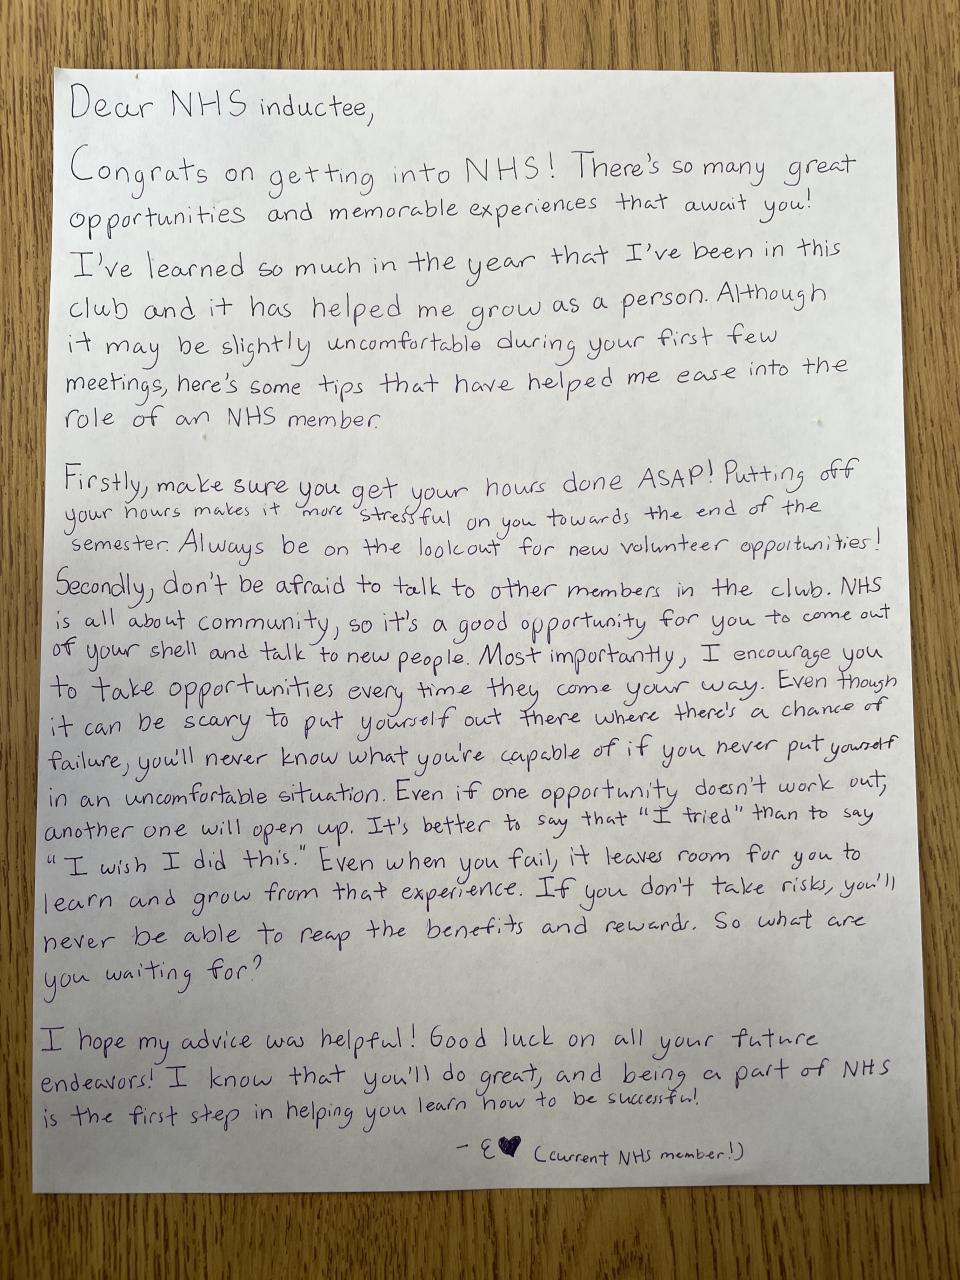 Dear NHS inductee,
Congrats on getting into NHS! There's so many great
opportunities and memorable experiences that await you!
I've learned so much in the year that I've been in this
club and it has helped me grow as a person. Although
it may be slightly uncomfortable during your first few
meetings, here's some tips that have helped me ease into the
role of an NHS member.
Firstly, make sure you get your hours done ASAP! Putting off
your hours makes it more stressful on you towards the end of the
semester. Always be on the lookout for new volunteer opportunities!
Secondly, don't be afraid to talk to other members in the club. NHS
is all about community, so it's a good opportunity for you to come out
of your shell and talk to new people. Most importantly, I encourage you
to take opportunities every time they come your way. Even though
it can be scary to put yourself out there where there's a chance of
failure, you'll never know what you're capable of if you never put yourself
in an uncomfortable situation. Even if one opportunity doesn't work out,
another one will open up. It's better to say that "I tried" than to say
"I wish I did this." Even when you fail, it leaves room for you to
learn and grow from that experience. If you don't take risks, you'll
never be able to reap the benefits and rewards. So what are
you waiting for?
I hope my advice was helpful! Good luck on all your future
endeavors! I know that you'll do great, and being a part of NHS
is the first step in helping you learn how to be successful!
- E♥ (current NHS member!)